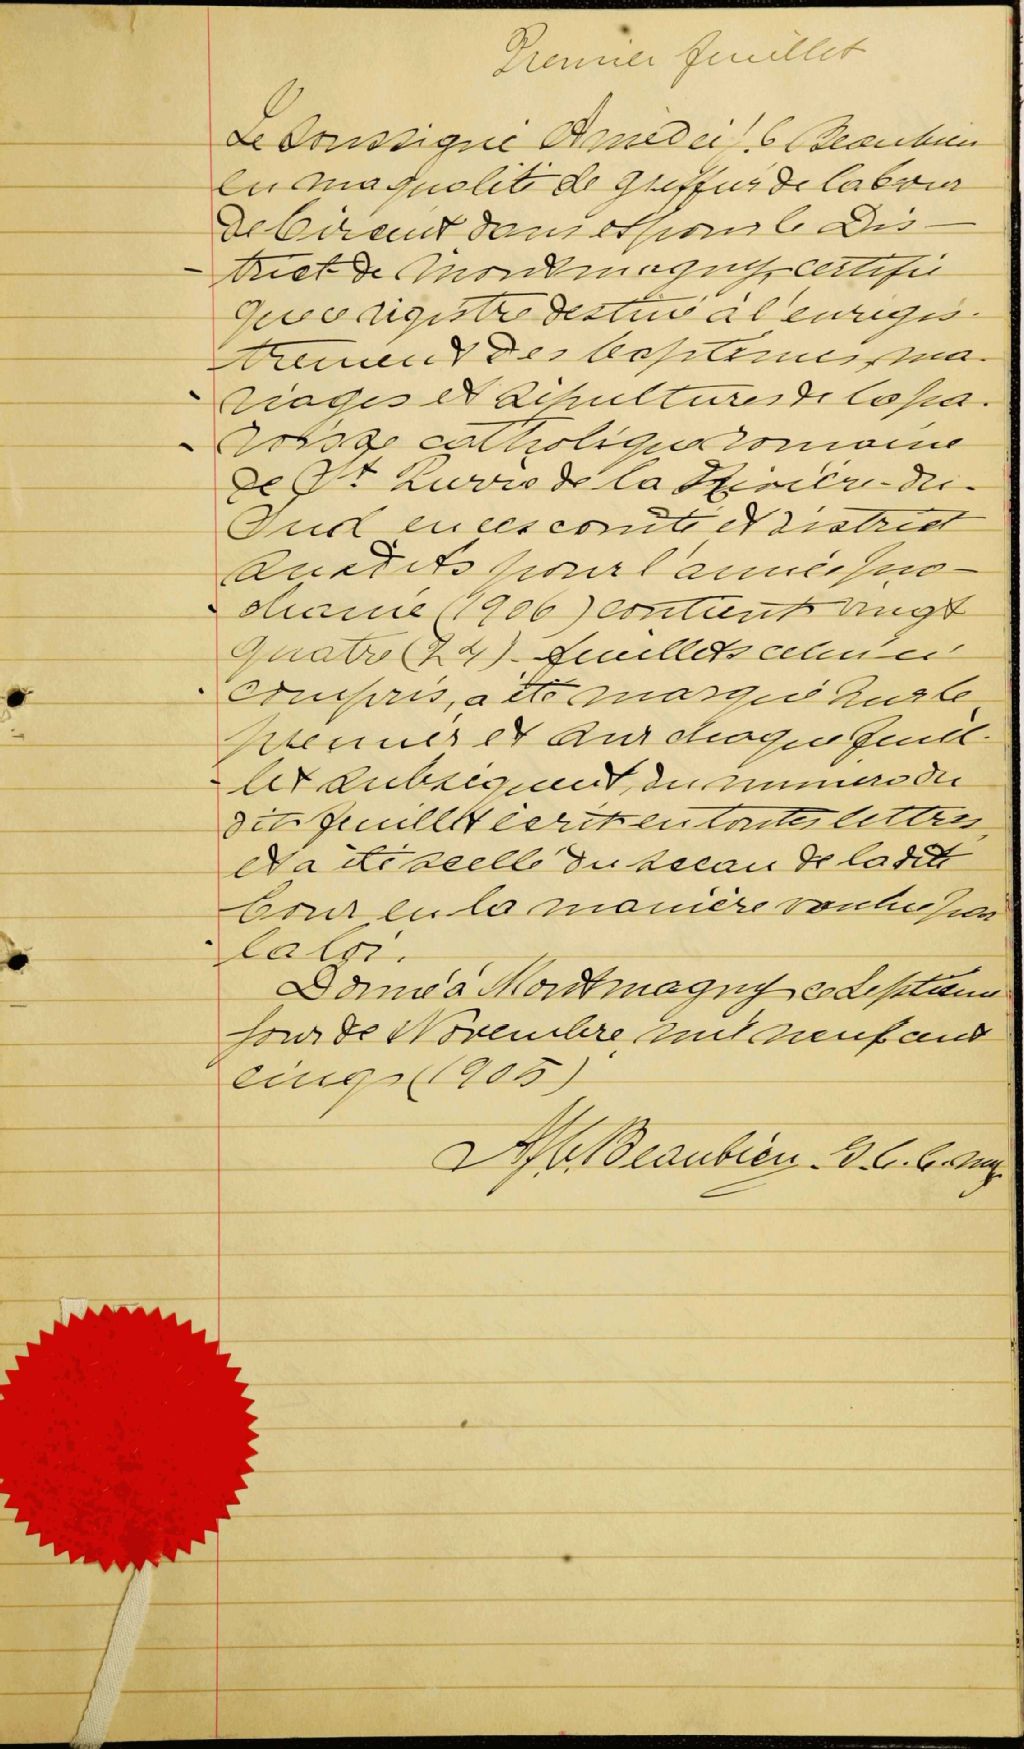 Premier feuillet
Le soussigné Amédée J. C Beaubien
en ma qualité de greffier de la Cour
de Circuit dans et pour le Dis-
trict de Montmagny, certifie
que ce registre destiné à l'enregis-
trement des baptêmes, ma-
riages et sépultures de la pa-
roisse catholique romaine
de St Pierre de la Rivière-du-
Sud en ces comté et district
susdits pour l'année pro-
chaine (1906) contient vingt
quatre (24) feuillets celui-ci
compris, a été marqué sur le
premier et sur chaque feuil-
let subséquent, du numéro du
dit feuillet écrit en toutes lettres,
et a été scellé du sceau de la dite
Cour en la manière voulue par
la loi.
Donné à Montmagny ce septième
jour de Novembre mil neuf cent
cinq (1905)
A J C. Beaubien G. C. C. My.